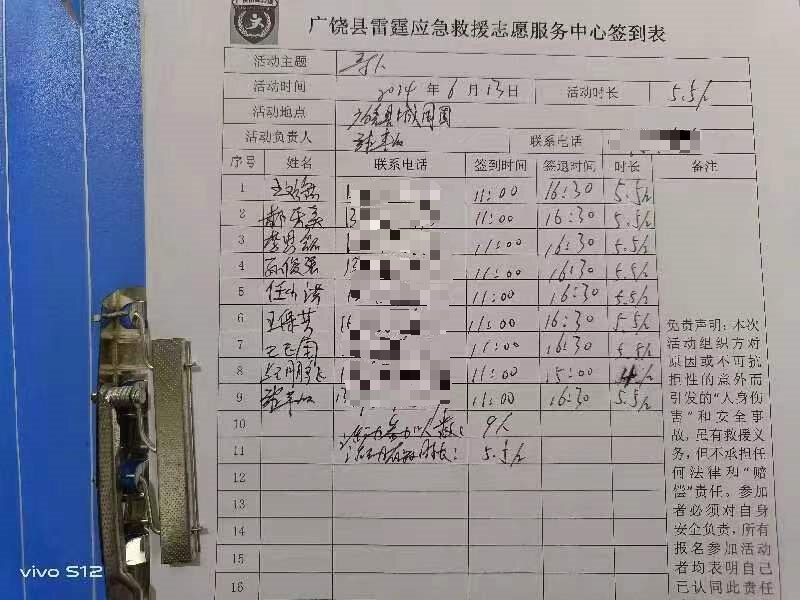 广饶县雷霆应急救援志愿服务中心签到表
活动主题 寻人
活动时间 2024 年 6 月 13 日 活动时长 5.5h
活动地点 广饶县城周围
活动负责人 联系电话
序号 姓名 联系电话 签到时间 签退时间 时长 备注
1 11:00 16:30 5.5h
2 11:00 16:30 5.5h
3 11:00 16:30 5.5h
4 孙俊强 13 11:00 16:30 5.5h
5 11:00 16:30 5.5h
6 11:00 16:30 5.5h
7 11:00 16:30 5.5h
8 11:00 15:00 4h
9 13 11:00 16:30 5.5h
10 活动参加人数: 9人
11 活动有效时长: 5.5h
12
13
14
15
16
免责声明:本次
活动组织方对
原因或不可抗
拒性的意外而
引发的“人身伤
害”和安全事
故,虽有救援义
务,但不承担任
何法律和“赔
偿”责任。参加
者必须对自身
安全负责,所有
报名参加活动
者均表明自己
已认同此责任
vivo S12